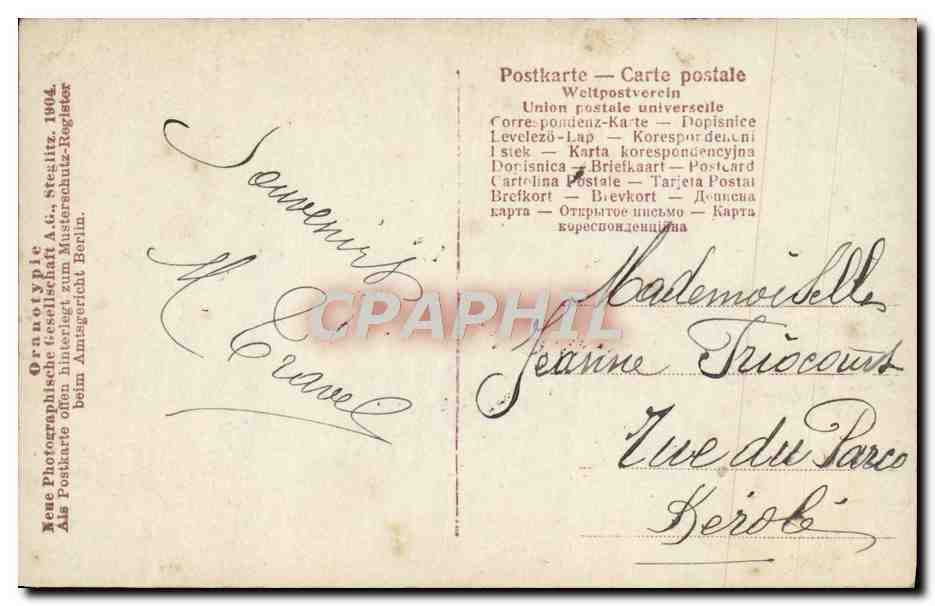 Oranotypie
Neue Photographische Gesellschaft A.G., Steglitz. 1904.
Als Postkarte offen hinterlegt zum Musterschutz-Register
beim Amtsgericht Berlin.
Souvenirs
M
Postkarte — Carte postale
Weltpostverein
Union postale universelle
Correspondenz-Karte — Dopisnice
Levelező-Lap — Korespondenčni
listek — Karta korespondencyjna
Dopisnica — Briefkaart — Postcard
Cartolina Postale — Tarjeta Postal
Brefkort — Brevkort — Дописна
карта — Открытое письмо — Карта
кореспонденційна
Mademoiselle
Jeanne Triocourt
Rue du Parco
Kérolé
CPAPHIL